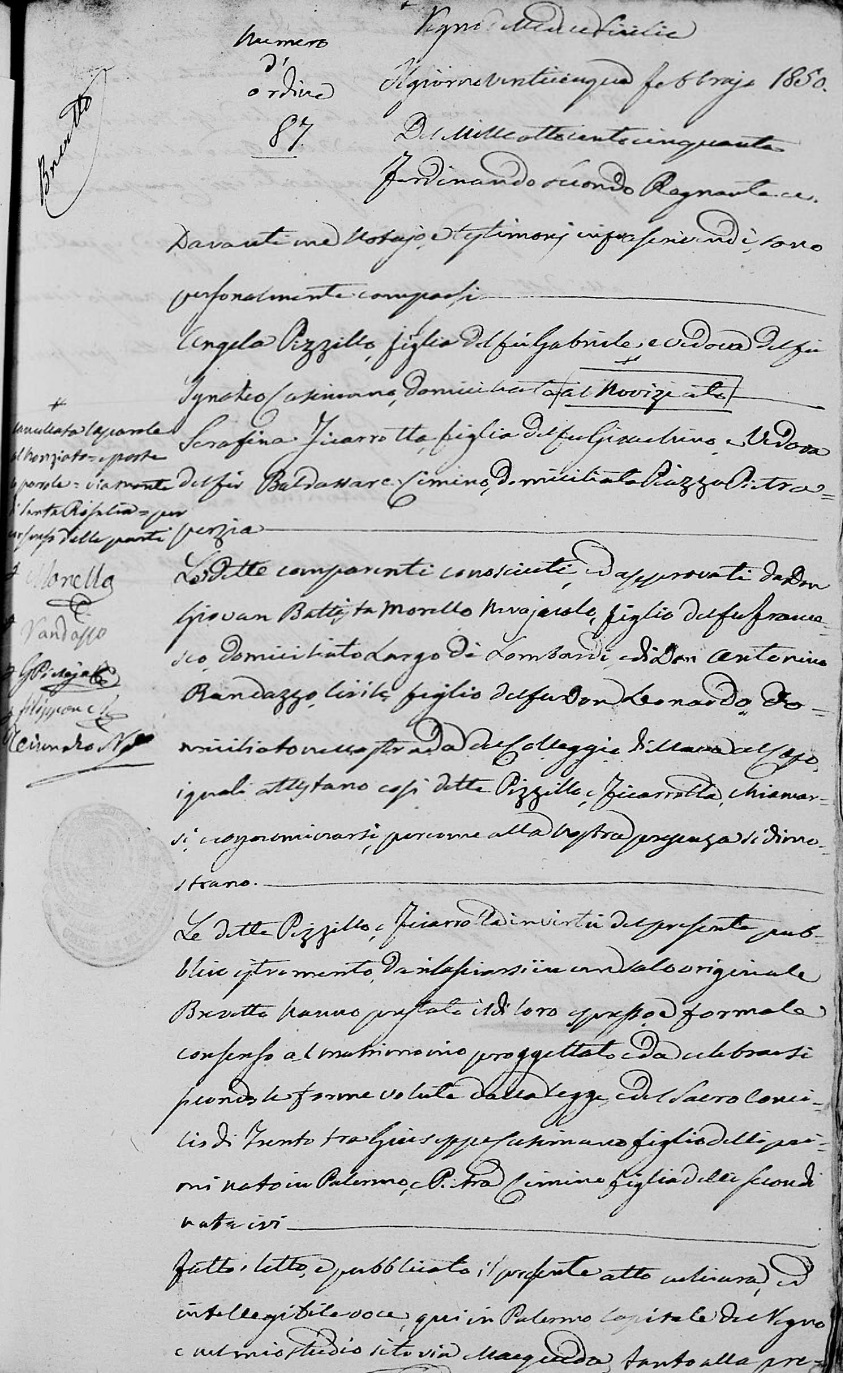 Brevetto
Numero
d'
ordine
87
Regno delle due Sicilie
Il giorno venticinque febbrajo 1850.
Del Mille otto cento cinquanta
Ferdinando secondo Regnante ec.
Davanti me Notajo, e testimonj infrascrivendi, sono
personalmente comparsi
Angela Pizzillo, figlia del fu Gabriele, e vedova del fu
Ignazio Casimano, domiciliata (al Noviziato)
Serafina Ficarrotta, figlia del fu Gioachino, e Vedova
del fu Baldassare Cimino, domiciliata Piazza Pietra=
perzia
Le dette comparenti conosciuti, ed approvati da Don
Giovan Battista Morello, figlio del fu France=
sco, domiciliato Largo di Lombardi, e di Don Antonino
Randazzo, Civile, figlio del fu Don Leonardo, do=
miciliato nella strada del Colleggio di Maria al Capo,
i quali attestano così dette Pizzillo, e Ficarrotta, chiamar=
si, e cognominarsi, percome alla nostra presenza si dimo=
strano.
Le dette Pizzillo, e Ficarrotta in virtù del presente pub=
blico istromento, da rilasciarsi in un solo originale
Brevetto hanno prestato il di loro espresso, e formale
consenso al matrimonio proggettato, e da celebrarsi
secondo le forme volute dalla legge, e del Sacro Conci=
lio di Trento tra Giuseppe Casimano figlio delli pri=
mi nato in Palermo, e Pietra Cimino figlia delli secondi
nata ivi
Fatto, letto, e pubblicato il presente atto a chiara, ed
intellegibile voce, qui in Palermo Capitale del Regno
e nel mio studio sito via Macqueda, tanto alla pre=
+
cancellata la parola
al Noviziato = e poste
le parole = via monte
di Santa Rosalia = per
consenso delle parti
Morello
Randazzo
Filippone